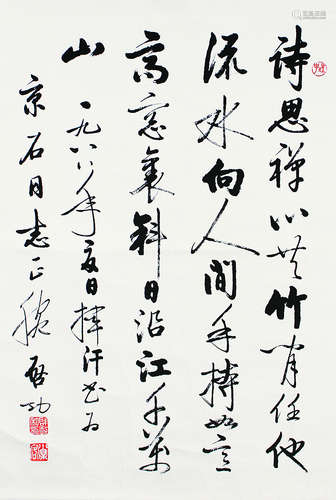 诗思禪心共竹闲任他
流水向人間手持如意
高窓裏斜日沿江千萬
山 一九八八年夏日揮汗书为
京石同志正腕 启功